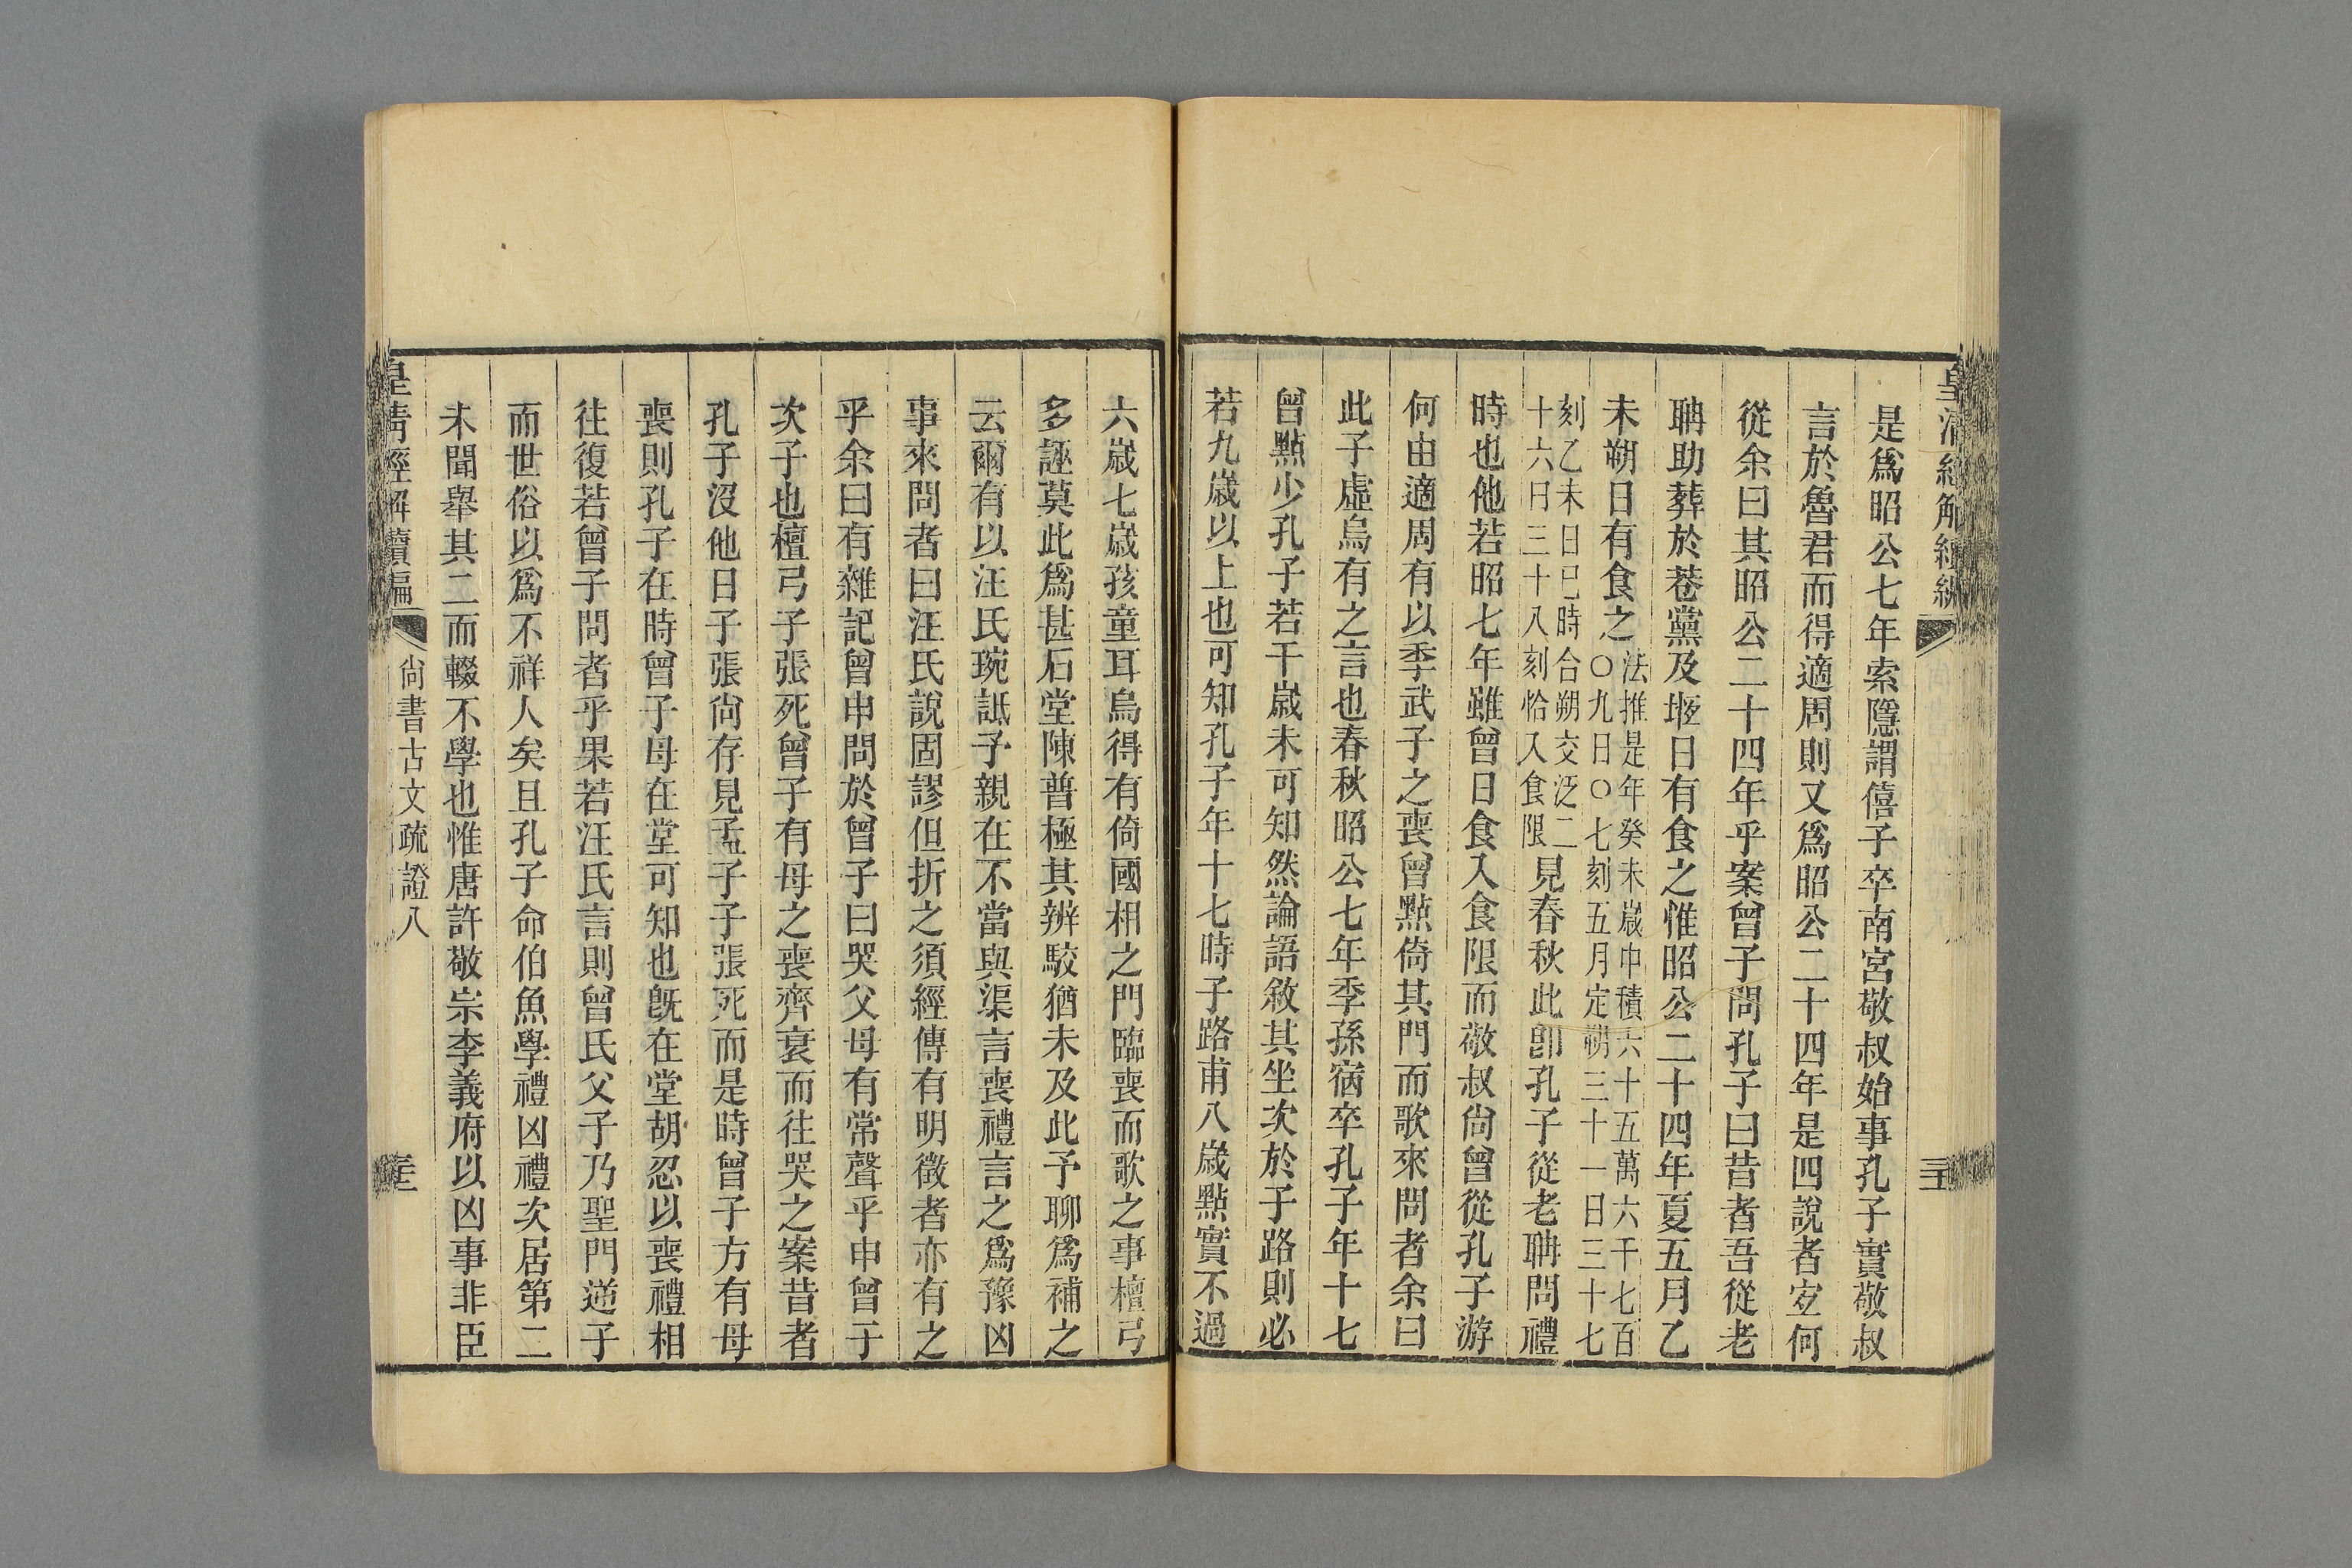 是爲昭公七年索隱謂僖子卒南宮敬叔始事孔子實敬叔
言於魯君而得適周則又爲昭公二十四年是四說者宐何
從余曰其昭公二十四年乎案曾子問孔子曰昔者吾從老
聃助葬於巷黨及堩日有食之惟昭公二十四年夏五月乙
未朔日有食之
法推是年癸未歲中積六十五萬六千七百
〇九日〇七刻五月定朔三十一日三十七
刻乙未日巳時合朔交泛二
十六日三十八刻恰入食限
見春秋此卽孔子從老聃問禮
時也他若昭七年雖曾日食入食限而敬叔尙曾從孔子游
何由適周有以季武子之喪曾點倚其門而歌來問者余曰
此子虛烏有之言也春秋昭公七年季孫宿卒孔子年十七
曾點少孔子若干歲未可知然論語敘其坐次於子路則必
若九歲以上也可知孔子年十七時子路甫八歲點實不過
六歲七歲孩童耳烏得有倚國相之門臨喪而歌之事檀弓
多誣莫此爲甚石堂陳普極其辨駮猶未及此予聊爲補之
云爾有以汪氏琬詆予親在不當與渠言喪禮言之爲豫凶
事來問者曰汪氏說固謬但折之須經傳有明徵者亦有之
乎余曰有雜記曾申問於曾子曰哭父母有常聲乎申曾子
次子也檀弓子張死曾子有母之喪齊衰而往哭之案昔者
孔子沒他日子張尙存見孟子子張死而是時曾子方有母
喪則孔子在時曾子母在堂可知也旣在堂胡忍以喪禮相
往復若曾子問者乎果若汪氏言則曾氏父子乃聖門逆子
而世俗以爲不祥人矣且孔子命伯魚學禮凶禮次居第二
未聞舉其二而輟不學也惟唐許敬宗李義府以凶事非臣
皇清經解續編
尙書古文疏證八